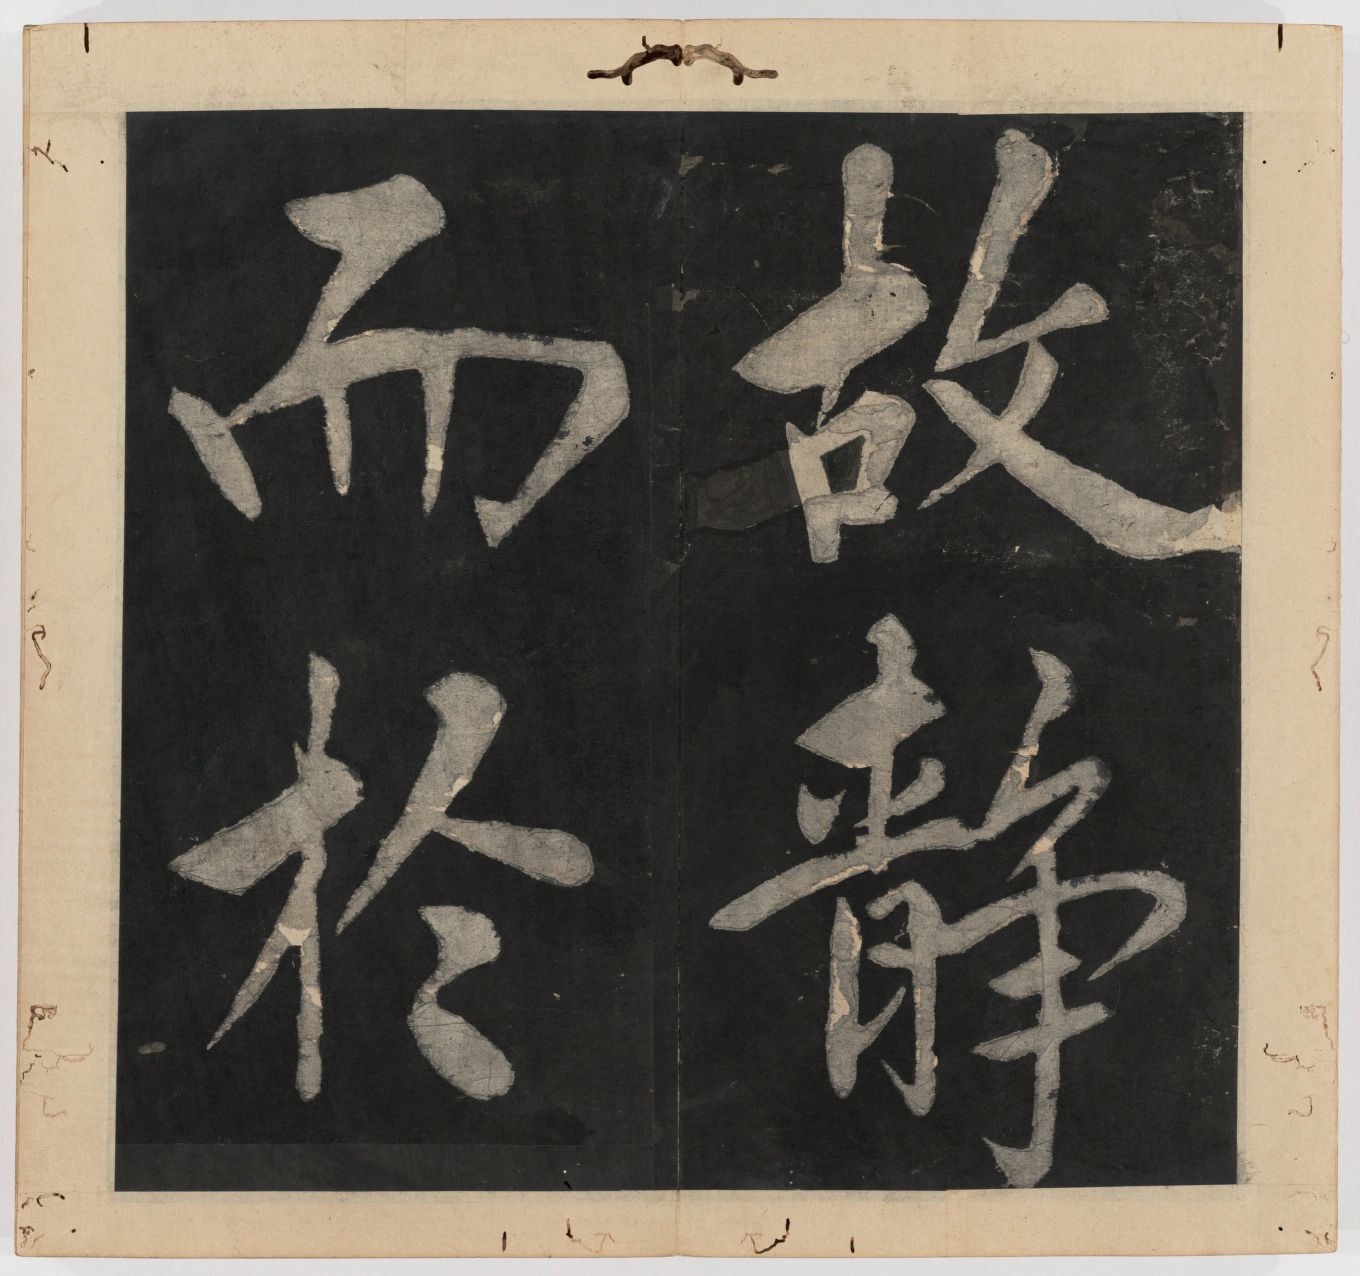 故靜
而於